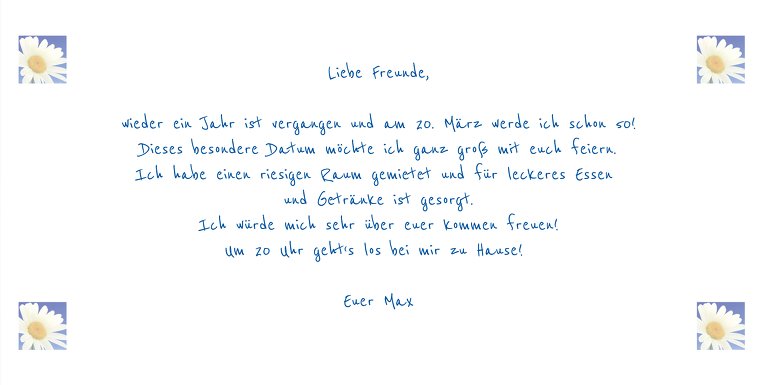 Liebe Freunde,
wieder ein Jahr ist vergangen und am 20. März werde ich schon 50!
Dieses besondere Datum möchte ich ganz groß mit euch feiern.
Ich habe einen riesigen Raum gemietet und für leckeres Essen
und Getränke ist gesorgt.
Ich würde mich sehr über euer Kommen freuen!
Um 20 Uhr geht's los bei mir zu Hause!
Euer Max